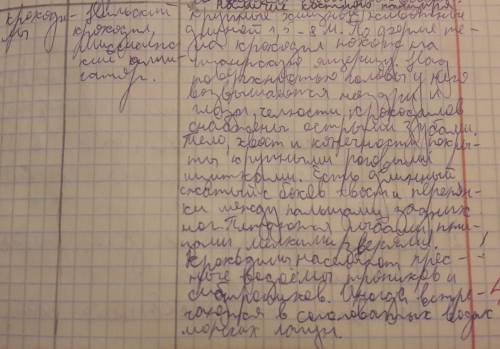 наличие костного панциря.
крокоди-
лы
Нильский
крокодил,
Миссисип-
ский алли-
гатор.
Крупные хищные животные
длиной 1,5 - 8 м. По форме те-
ла крокодил похож на
гигантскую ящерицу. Над
поверхностью головы у него
возвышаются ноздри и
глаза, челюсти крокодилов
снабжены острыми зубами.
Тело, хвост и конечности покры-
ты крупными роговыми
щитками. Есть длинный
сжатый с боков хвост и перепон-
ки между пальцами задних
ног. Питаются рыбами, пти-
цами, мелкими зверями.
Крокодилы населяют прес-
ные водоемы тропиков и
субтропиков. Иногда встре-
чаются в солоноватых водах
морских лагун.